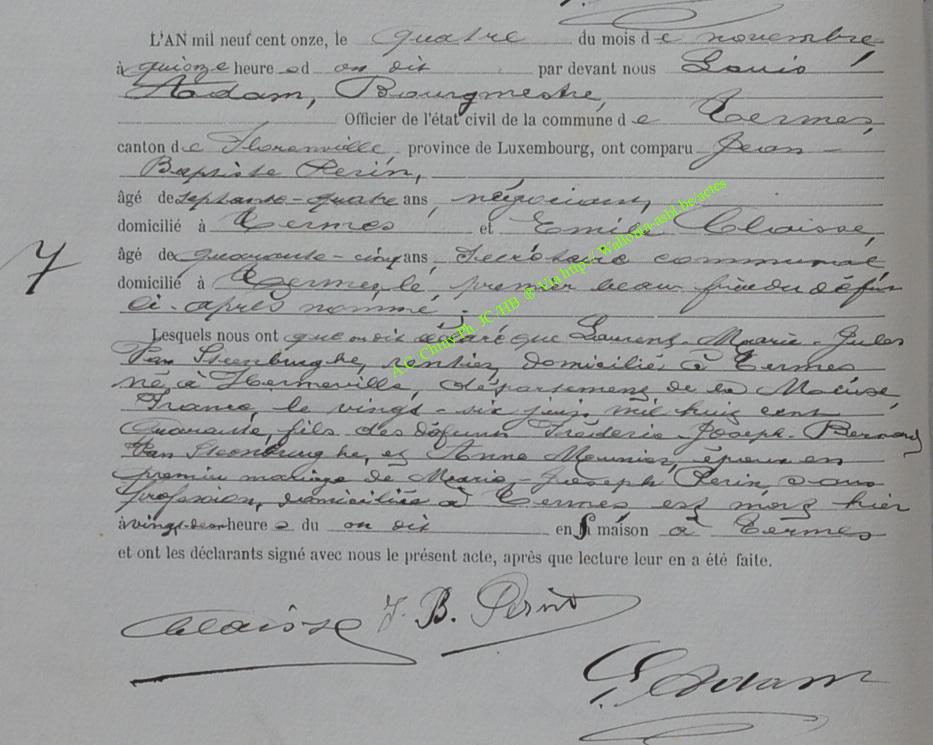 L'AN mil neuf cent onze, le quatre du mois de novembre,
à quinze heures d on dit par devant nous Louis
Adam, Bourgmestre,
Officier de l'état civil de la commune de Termes,
canton de Florenville, province de Luxembourg, ont comparu Jean-
Baptiste Perin,
âgé de septante-quatre ans, négociant,
domicilié à Termes et Emile Claisse,
âgé de quarante-cinq ans, Secrétaire communal
domicilié à Termes, le premier beau frère du défunt
ci-après nommé.
7
Lesquels nous ont que on dit déclaré que Laurent-Marie-Jules
Van Steenbrughe, rentier, domicilié à Termes
né à Herméville, département de la Meuse,
France, le vingt-six juin mil huit cent
quarante, fils des défunts Fréderic-Joseph-Bernard
Van Steenbrughe, et Anne Meunier, époux en
premier mariage de Marie-Joseph Perin, sans
profession, domiciliée à Termes, est mort hier
à vingt-deux heures du on dit en sa maison à Termes
et ont les déclarants signé avec nous le présent acte, après que lecture leur en a été faite.
Claisse J. B. Perin
L. Adam
A.C. Chiny Ph JC /HB @ Via http://Wallonia-asbl.be/actes